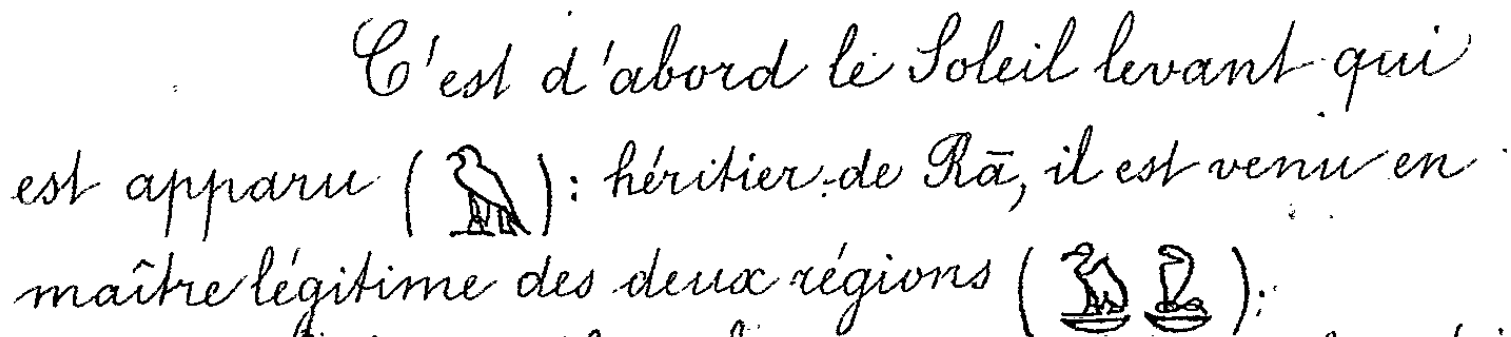 C'est d'abord le Soleil levant qui
est apparu (𓅃) : héritier de Rā, il est venu en
maître légitime des deux régions (𓅒) ;